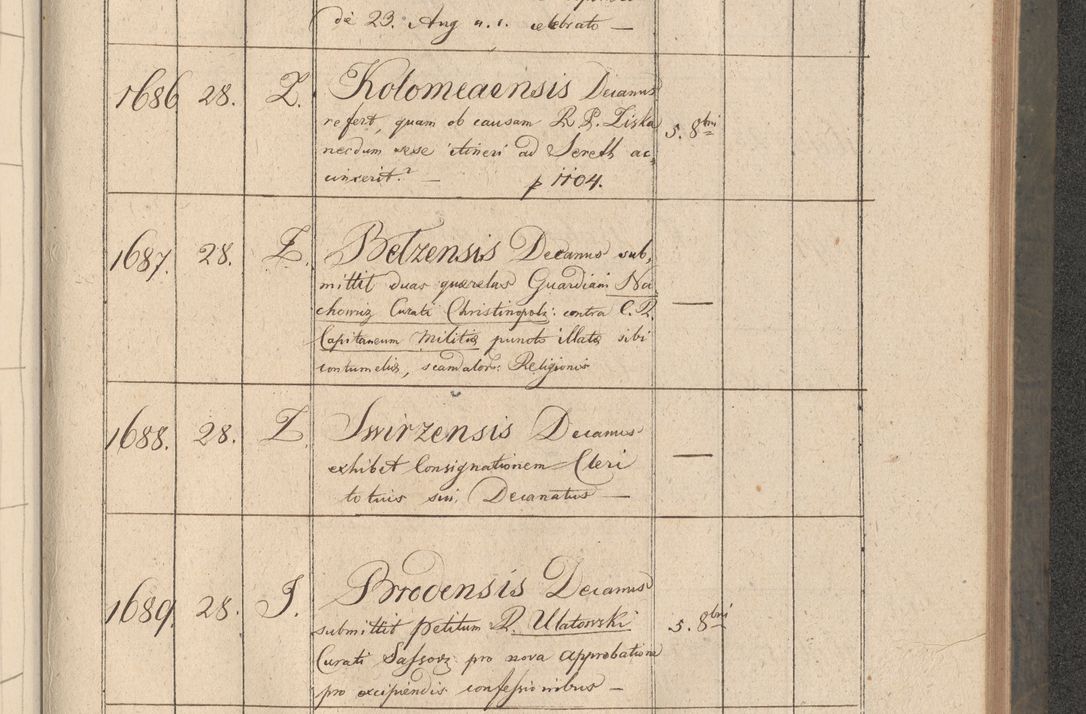 de 23. Aug a. c. celebrato —
1686 28. Z. Kolomeaensis Decanus
refert, quam ob causam R. P. Ziska 5. 8bris
necdum sese itineri ad Sereth ac
cinxerit? — p 1704.
1687. 28. Z. Betzensis Decanus sub,
mittit duas querelas Guardiani Na
chowicz Curati Christinopolz: contra C. R. —
Capitaneum Militiæ puncto illatæ sibi
contumeliæ, scandalor: Religionis
1688. 28. Z. Swirzensis Decanus
exhibet Consignationem Cleri —
totius sui, Decanatus —
1689. 28. J. Brodensis Decanus
submittit petitum R. Ulatowski 5. 8bris
Curati Sassovz: pro nova approbatione
pro excipiendis confessionibus —